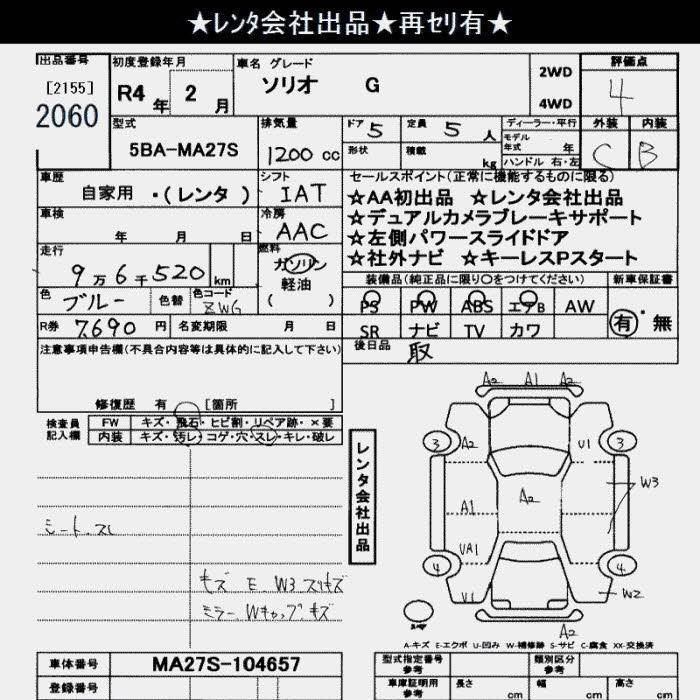 ★ﾚﾝﾀ会社出品★再ｾﾘ有★
出品番号
[2155]
2060
初度登録年月
R4 年 2 月
車名 グレード
ソリオ G
2WD
4WD
評価点
4
型式
5BA-MA27S
排気量
1200 cc
ドア 5
定員 5 人
形状
積載
kg
ディーラー・平行
モデル年式 年
ハンドル 右・左
外装 内装
C B
車歴
自家用 ・(レンタ )
シフト
IAT
セールスポイント(正常に機能するものに限る)
☆AA初出品 ☆レンタ会社出品
☆デュアルカメラブレーキサポート
☆左側パワースライドドア
☆社外ナビ ☆キーレスPスタート
車検
年 月 日
冷房
AAC
走行
9万6千520 km
燃料
ガソリン
軽油
( )
色
ブルー
色替
色コード
ZWG
装備品(純正品に限り〇をつけてください)
新車保証書
PS PW ABS エアB AW
SR ナビ TV カワ
有・無
R券 7,690 円
名変期限 月 日
後日品
取
注意事項申告欄(不具合内容等は具体的に記入して下さい)
修復歴 有 [箇所 ]
検査員
記入欄
FW キズ・飛石・ヒビ割・リペア跡・×要
内装 キズ・汚レ・コゲ・穴・スレ・キレ・破レ
シート.スレ
キズ E W3 スリキズ
ミラー.Wキャップ キズ
レンタ会社出品
A2 A1 A2
3 A2 U1 3
A2
W3
A1
UA1
4 4
U1 W2
A2
スペア
A-キズ E-エクボ U-凹み W-補修跡 S-サビ C-腐食 XX-交換済
車体番号
MA27S-104657
登録番号
型式指定番号
参考
類別区分
参考
車庫証明用
参考
長さ cm
幅 cm
高さ cm